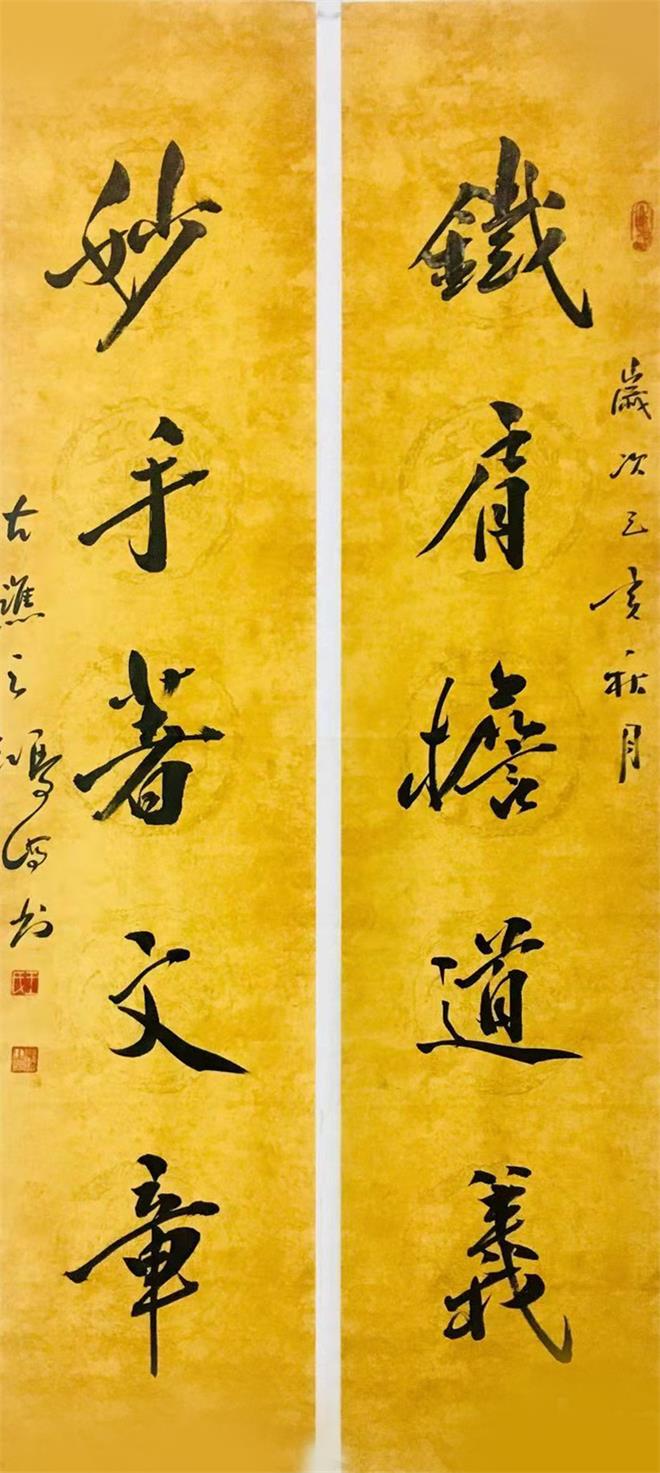 歲次己亥秋月
鐵肩擔道義
妙手著文章
古譙 鴻 书